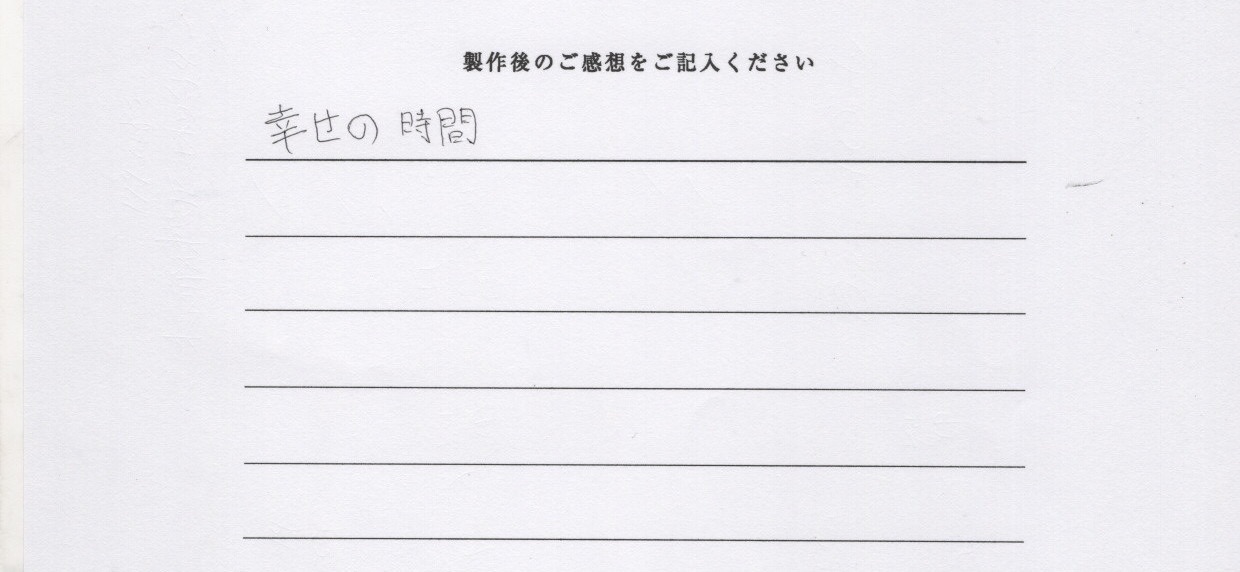 製作後のご感想をご記入ください
幸せの時間